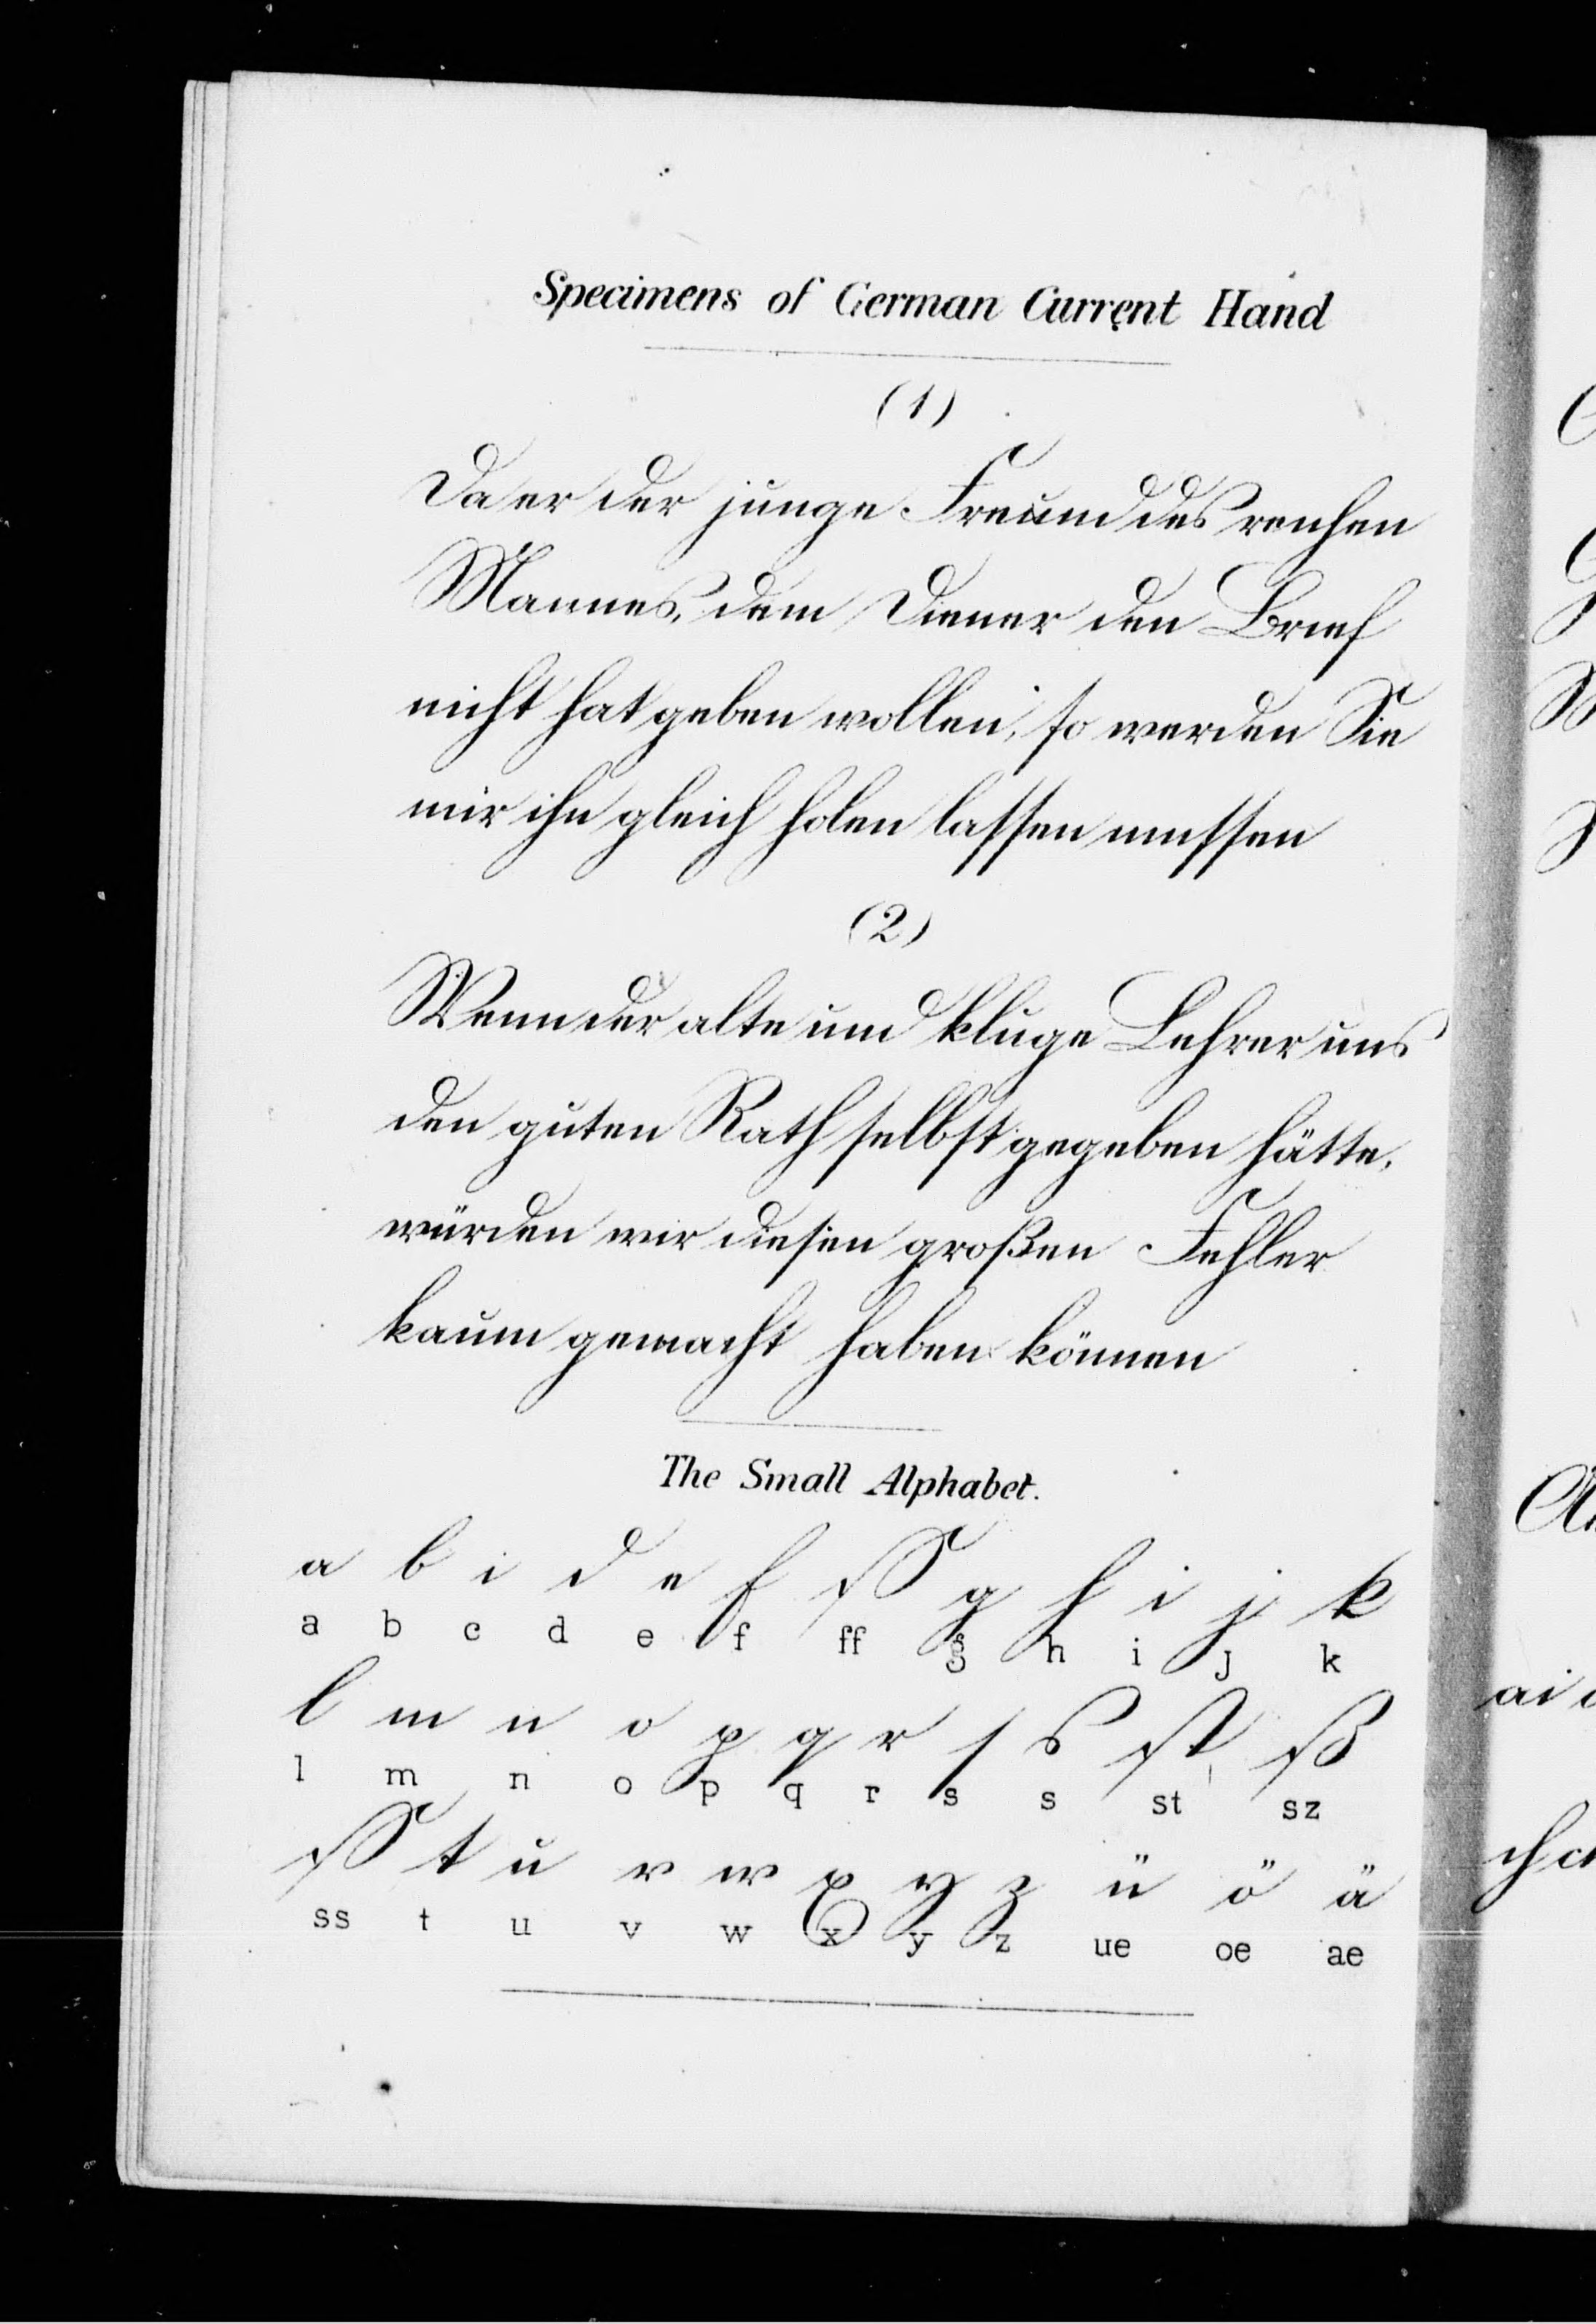 Specimens of German Current Hand
(1)
Da er der junge Freund des reichen
Mannes, dem Diener den Brief
nicht hat geben wollen, so werden Sie
mir ihn gleich holen lassen mussen
(2)
Wenn der alte und kluge Lehrer uns
den guten Rath selbst gegeben hätte,
würden wir diesen großen Fehler
kaum gemacht haben können
The Small Alphabet.
a b c d e f ff g h i j k
a b c d e f ff g h i j k
l m n o p q r s s st ß
l m n o p q r s s st sz
ss t u v w x y z ü ö ä
ss t u v w x y z ue oe ae